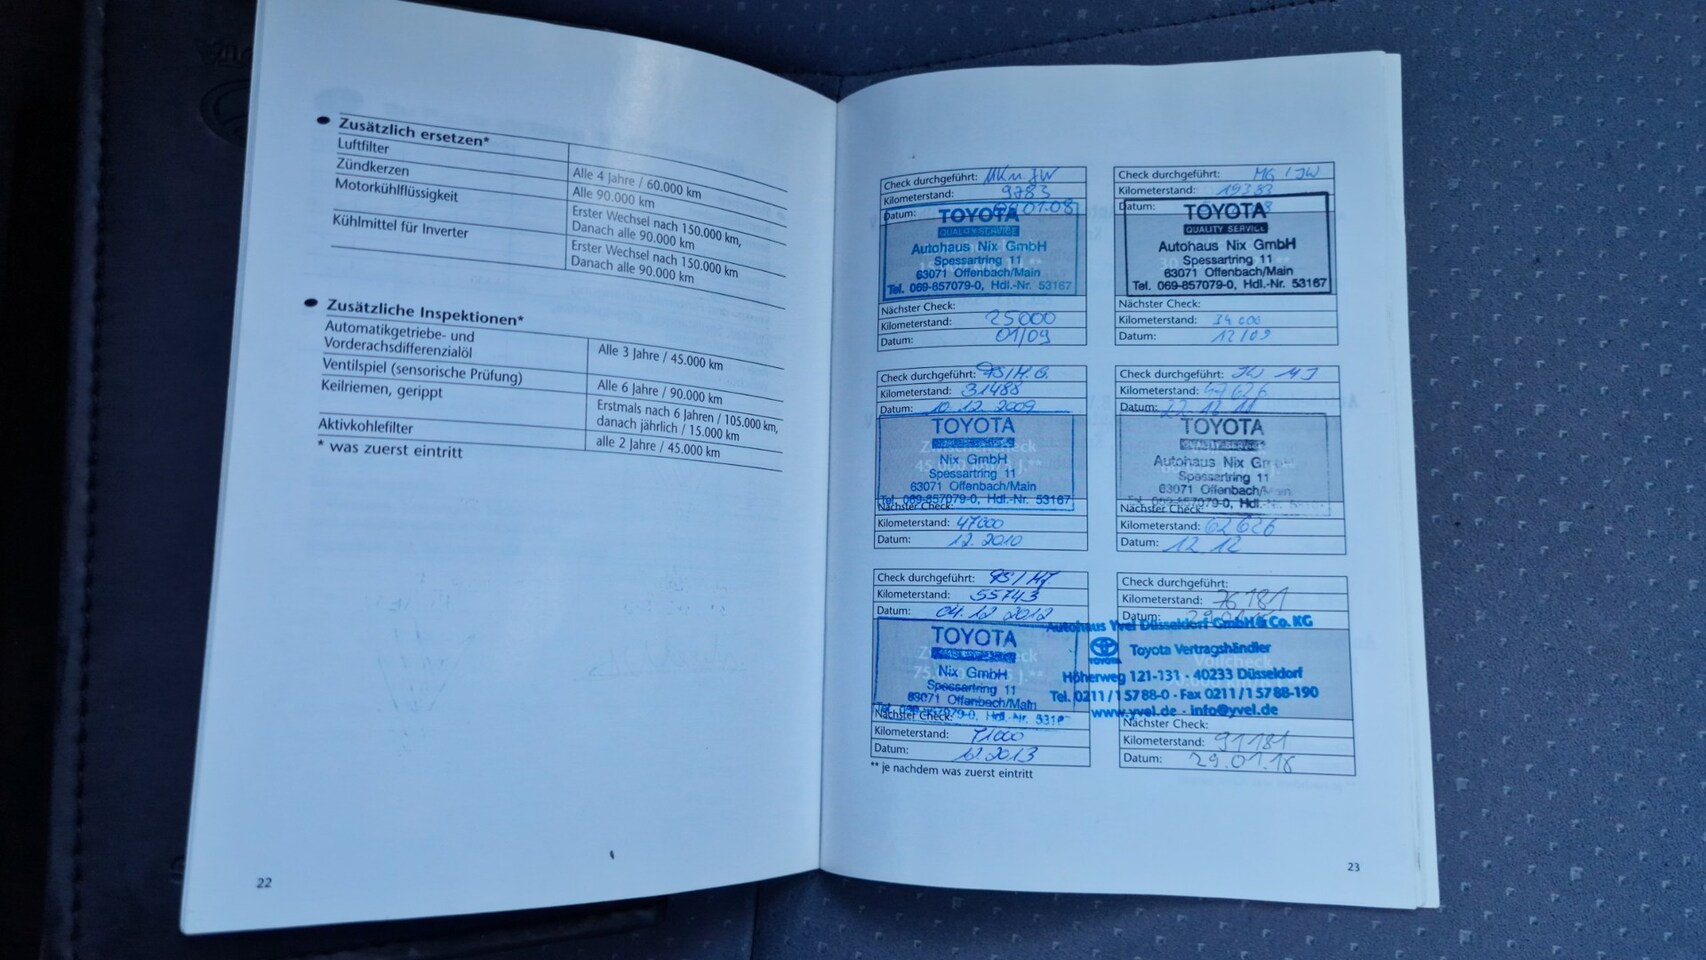 ● Zusätzlich ersetzen*
Luftfilter Alle 4 Jahre / 60.000 km
Zündkerzen Alle 90.000 km
Motorkühlflüssigkeit Erster Wechsel nach 150.000 km,
Danach alle 90.000 km
Kühlmittel für Inverter Erster Wechsel nach 150.000 km
Danach alle 90.000 km
● Zusätzliche Inspektionen*
Automatikgetriebe- und
Vorderachsdifferenzialöl Alle 3 Jahre / 45.000 km
Ventilspiel (sensorische Prüfung) Alle 6 Jahre / 90.000 km
Keilriemen, gerippt Erstmals nach 6 Jahren / 105.000 km,
danach jährlich / 15.000 km
Aktivkohlefilter alle 2 Jahre / 45.000 km
* was zuerst eintritt
22
Check durchgeführt:
Kilometerstand: 9783
Datum: 01.08
TOYOTA
QUALITY SERVICE
Autohaus Nix GmbH
Spessartring 11
63071 Offenbach/Main
Tel. 069-857079-0, Hdl.-Nr. 53167
Nächster Check:
Kilometerstand: 25000
Datum: 01/09
Check durchgeführt: MG / JW
Kilometerstand: 19383
Datum:
TOYOTA
QUALITY SERVICE
Autohaus Nix GmbH
Spessartring 11
63071 Offenbach/Main
Tel. 069-857079-0, Hdl.-Nr. 53167
Nächster Check:
Kilometerstand: 34000
Datum: 12/09
Check durchgeführt:
Kilometerstand: 31488
Datum: 10.12.2009
TOYOTA
Nix GmbH
Spessartring 11
63071 Offenbach/Main
Tel. 069-857079-0, Hdl.-Nr. 53167
Nächster Check:
Kilometerstand: 47000
Datum: 12.2010
Check durchgeführt:
Kilometerstand: 47626
Datum: 22.12.11
TOYOTA
Autohaus Nix
Spessartring 11
63071 Offenbach/Main
Nächster Check:
Kilometerstand: 62626
Datum: 12.12
Check durchgeführt:
Kilometerstand: 55743
Datum: 04.12.2012
TOYOTA
Nix GmbH
Spessartring 11
63071 Offenbach/Main
Nächster Check:
Kilometerstand: 71000
Datum: 12.2013
Check durchgeführt:
Kilometerstand: 76181
Datum:
Autohaus Yvel Düsseldorf GmbH & Co. KG
TOYOTA Toyota Vertragshändler
Vollcheck
Höherweg 121-131 - 40233 Düsseldorf
Tel. 0211/15788-0 - Fax 0211/15788-190
www.yvel.de - info@yvel.de
Nächster Check:
Kilometerstand: 91181
Datum: 29.01.16
** je nachdem was zuerst eintritt
23